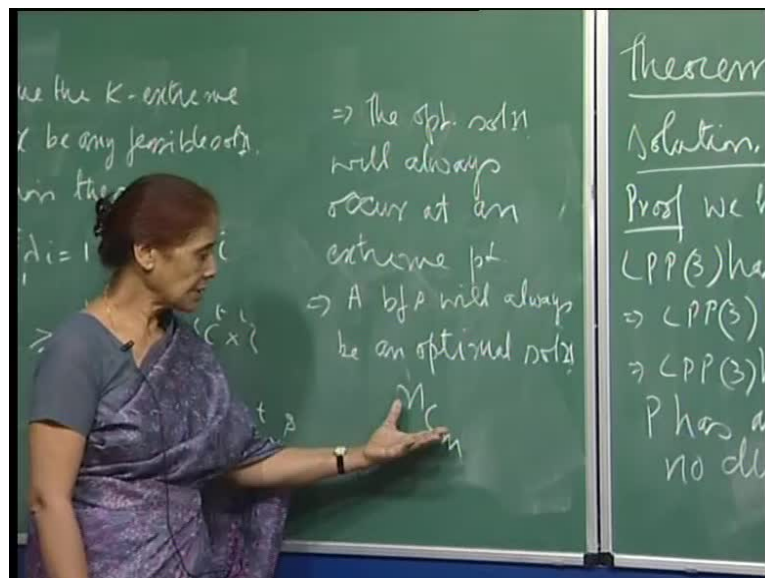 the K-extreme
be any feasible soln.
in the
λi = 1
≥
⇒ The opt. soln.
will always
occur at an
extreme pt.
⇒ A bfs will always
be an optimal soln.
n
C
m
Theorem
Solution.
Proof we h
LPP(3) has
⇒ LPP(3)
⇒ LPP(3) h
P has a
no di